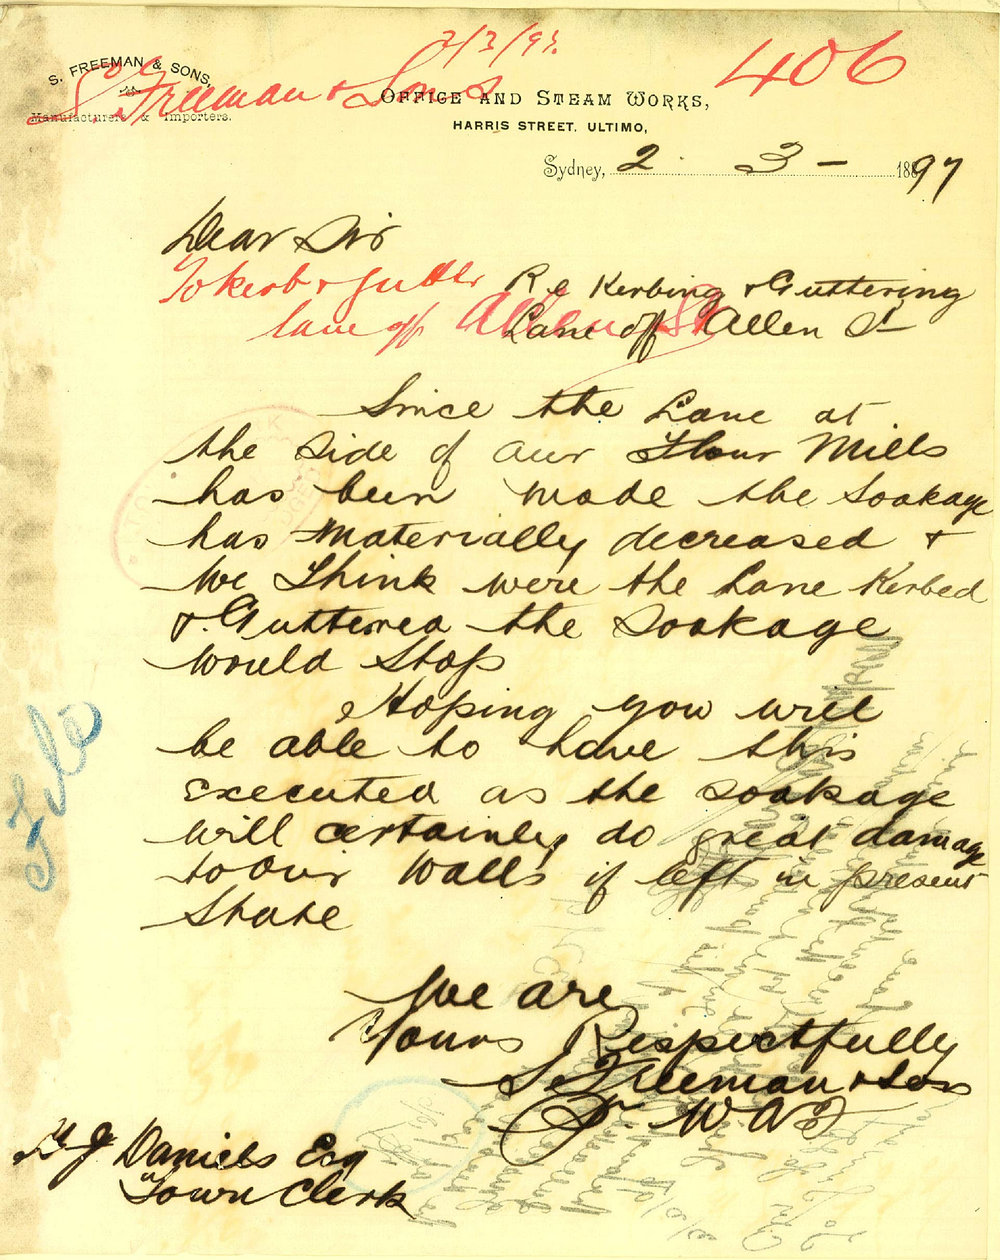 2/3/97.
406
S. FREEMAN & SONS,
Manufacturers & Importers.
S Freeman & Sons
OFFICE AND STEAM WORKS,
HARRIS STREET, ULTIMO,
Sydney, 2 . 3 - 1897
Dear Sir
To kerb & gutter
lane off Allen St
Re Kerbing & Guttering
Lane off Allen St
Since the Lane at
the side of our Flour Mills
has been made the Soakage
has materially decreased &
We Think were the Lane Kerbed
& Guttered the Soakage
would stop
Hoping you will
be able to have this
Executed as the soakage
will certainly do great damage
to our Walls if left in present
State
We are
Yours Respectfully
S. Freeman & Sons
Pr W.A.F
File
Daniels Esq
Town Clerk